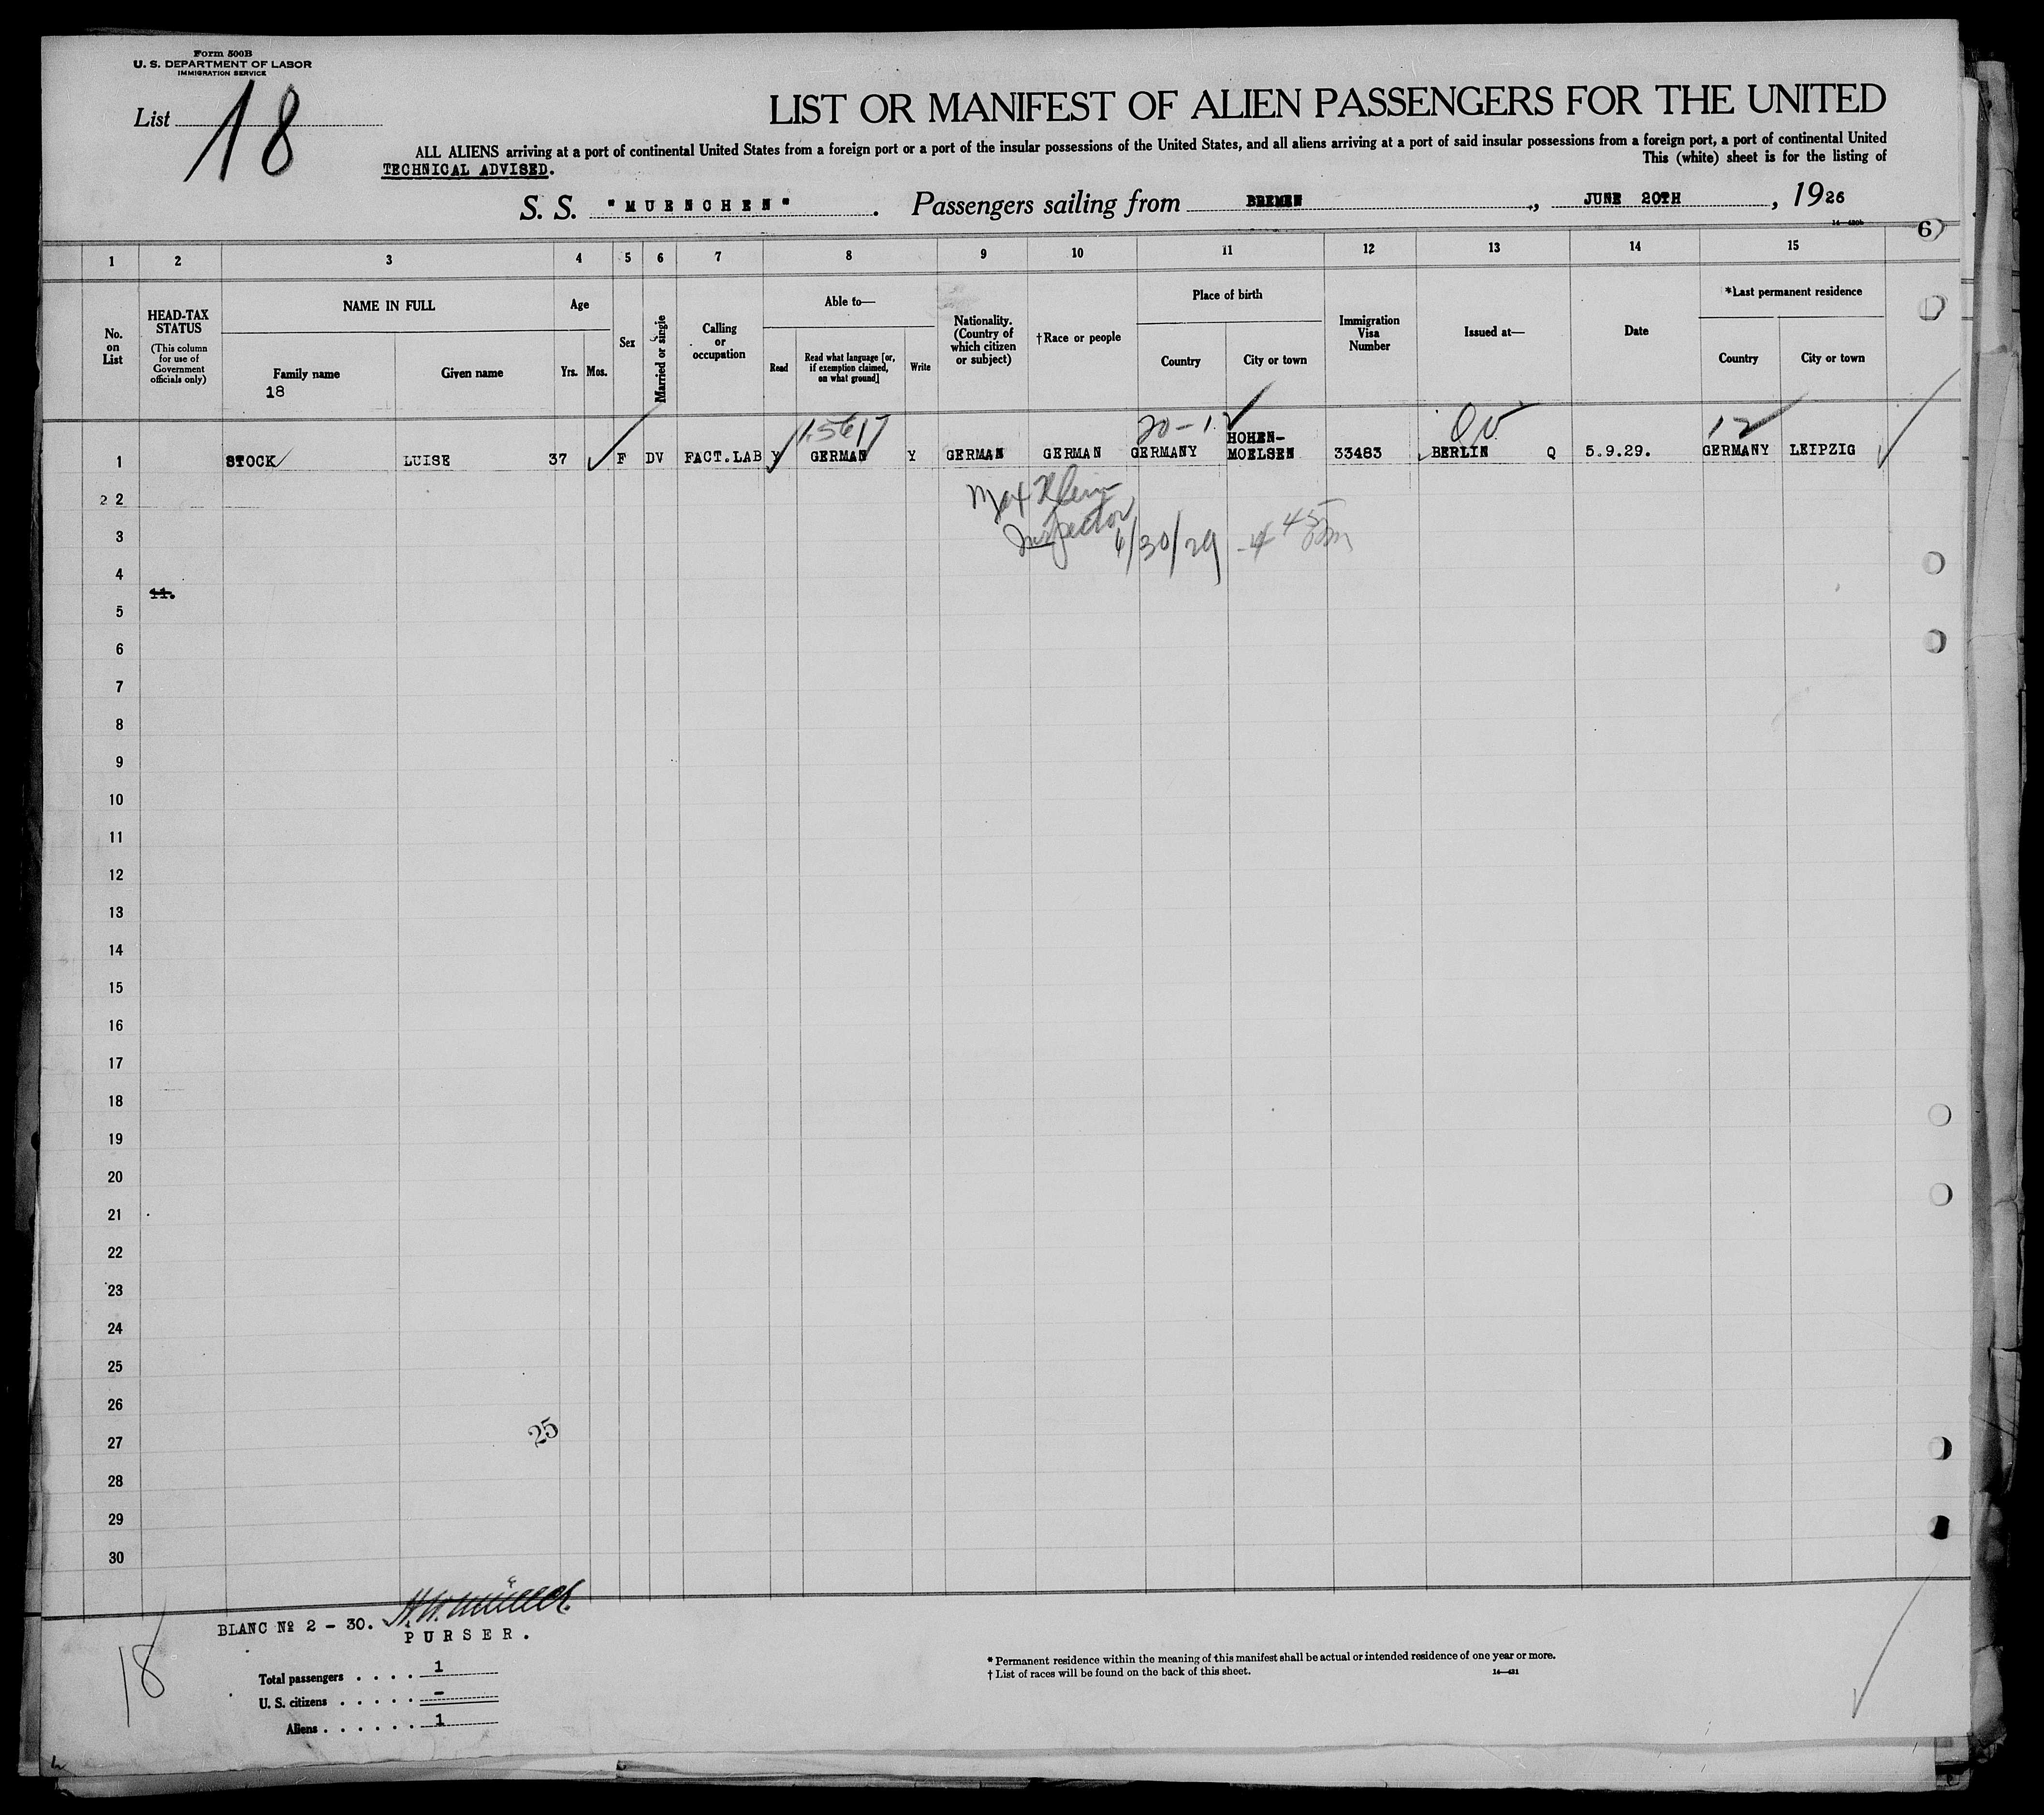 Form 500B
U. S. DEPARTMENT OF LABOR
IMMIGRATION SERVICE
List 18
LIST OR MANIFEST OF ALIEN PASSENGERS FOR THE UNITED
ALL ALIENS arriving at a port of continental United States from a foreign port or a port of the insular possessions of the United States, and all aliens arriving at a port of said insular possessions from a foreign port, a port of continental United
TECHNICAL ADVISED. This (white) sheet is for the listing of
S. S. "MUENCHEN". Passengers sailing from BREMEN, JUNE 20TH, 1926
6
1 2 3 4 5 6 7 8 9 10 11 12 13 14 15
No. on List
HEAD-TAX STATUS
(This column for use of Government officials only)
NAME IN FULL
Family name
18
Given name
Age
Yrs. Mos.
Sex
Married or single
Calling or occupation
Able to—
Read
Read what language [or, if exemption claimed, on what ground]
Write
Nationality. (Country of which citizen or subject)
†Race or people
Place of birth
Country
City or town
Immigration Visa Number
Issued at—
Date
*Last permanent residence
Country
City or town
20-1 12
1 STOCK LUISE 37 F DV FACT.LAB Y GERMAN Y GERMAN GERMAN GERMANY HOHEN-MOELSEN 33483 BERLIN Q 5.9.29. GERMANY LEIPZIG
2 2
Inspector
3
6/30/29
4
11.
5
6
7
8
9
10
11
12
13
14
15
16
17
18
19
20
21
22
23
24
25
26
25
27
28
29
30
BLANC № 2 - 30. H.W. Müller.
PURSER.
18
Total passengers . . . . 1
U. S. citizens . . . . . -
Aliens . . . . . . 1
* Permanent residence within the meaning of this manifest shall be actual or intended residence of one year or more.
† List of races will be found on the back of this sheet.
14—421